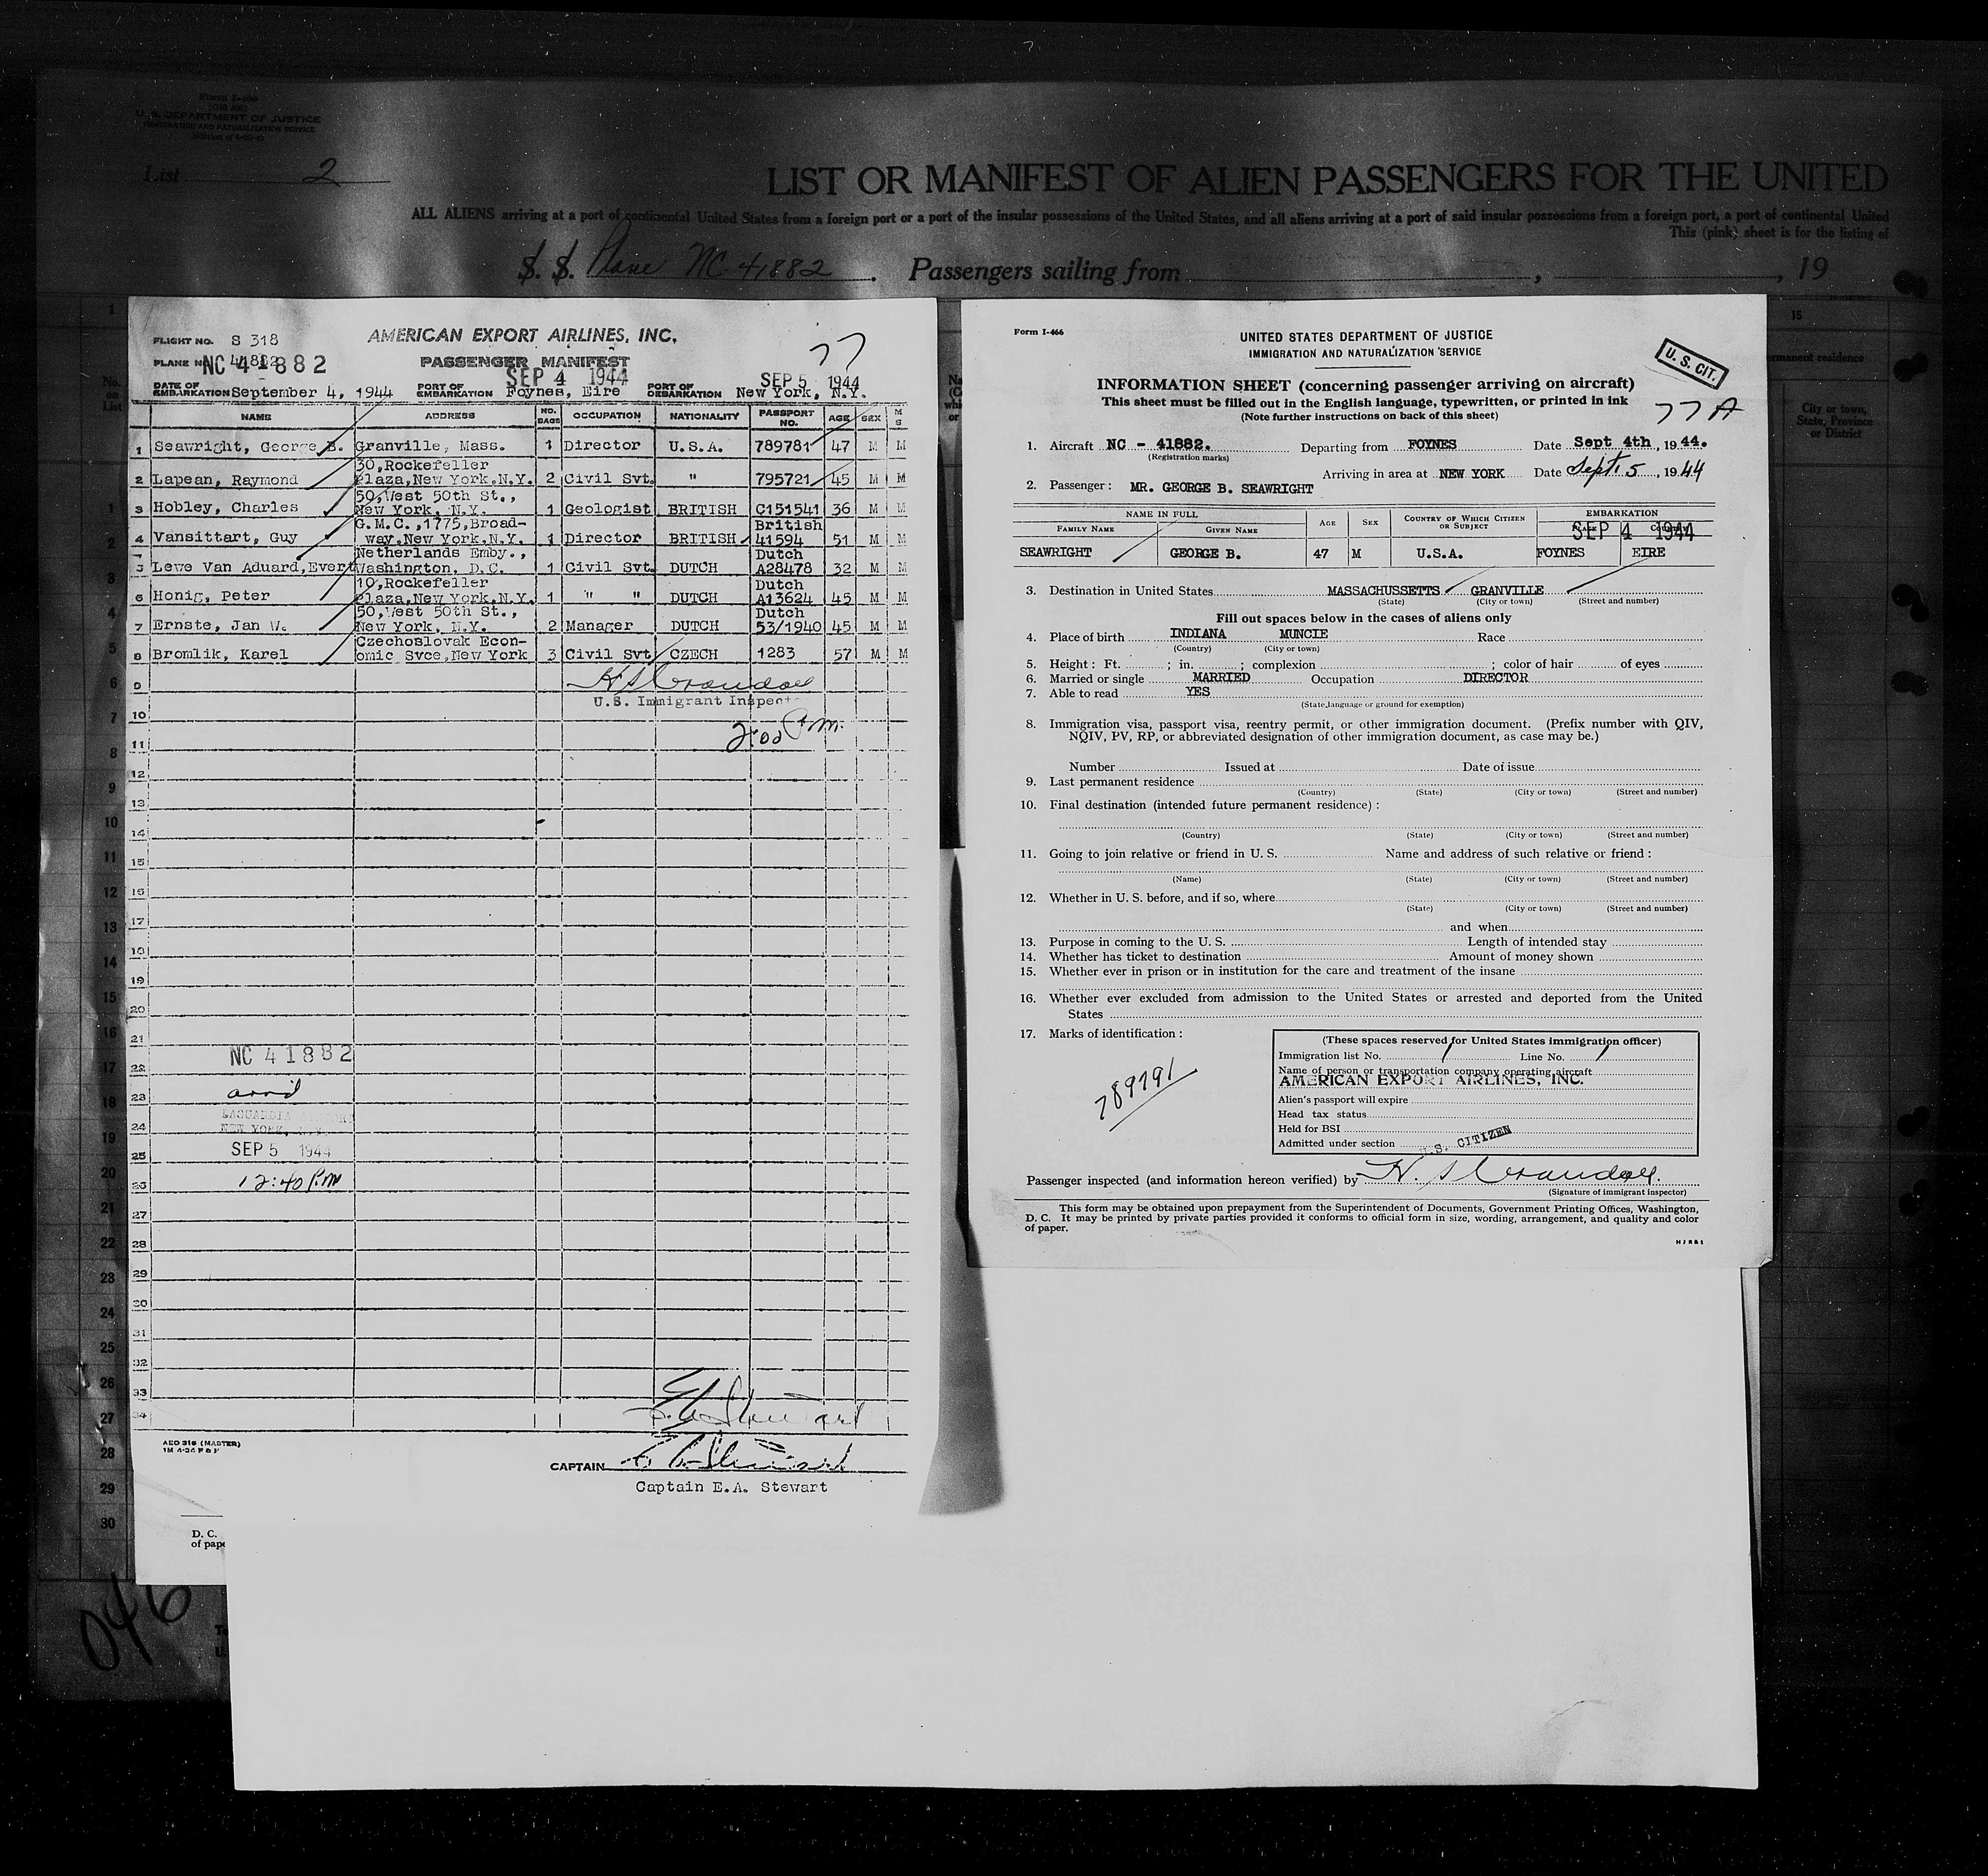 Form I-466
U. S. DEPARTMENT OF JUSTICE
IMMIGRATION AND NATURALIZATION SERVICE
List 2
LIST OR MANIFEST OF ALIEN PASSENGERS FOR THE UNITED
ALL ALIENS arriving at a port of continental United States from a foreign port or a port of the insular possessions of the United States, and all aliens arriving at a port of said insular possessions from a foreign port, a port of continental United
This (pink) sheet is for the listing of
S. S. Plane NC 41882. Passengers sailing from , , 19
FLIGHT NO. S 318
AMERICAN EXPORT AIRLINES, INC.
77
PLANE NO. NC 41882
PASSENGER MANIFEST
SEP 4 1944
SEP 5 1944
DATE OF EMBARKATION September 4, 1944 PORT OF EMBARKATION Foynes, Eire PORT OF DEBARKATION New York, N.Y.
NAME ADDRESS NO. BAGS OCCUPATION NATIONALITY PASSPORT NO. AGE SEX M S
1 Seawright, George B. Granville, Mass. 1 Director U.S.A. 789781 47 M M
30,Rockefeller
2 Lapean, Raymond Plaza,New York,N.Y. 2 Civil Svt. " 795721 45 M M
50,West 50th St.,
3 Hobley, Charles New York, N.Y. 1 Geologist BRITISH C151541 36 M M
G.M.C.,1775,Broad- British
4 Vansittart, Guy way,New York,N.Y. 1 Director BRITISH 41594 51 M M
Netherlands Emby., Dutch
5 Lewe Van Aduard,Evert Washington, D.C. 1 Civil Svt. DUTCH A28478 32 M M
10,Rockefeller Dutch
6 Honig, Peter Plaza,New York,N.Y. 1 " " DUTCH A13624 45 M M
50,West 50th St., Dutch
7 Ernste, Jan W. New York, N.Y. 2 Manager DUTCH 53/1940 45 M M
Czechoslovak Econ-
8 Bromlik, Karel omic Svce,New York 3 Civil Svt CZECH 1283 57 M M
9 H S Crandall
U.S. Immigrant Inspect
10
2:00 P.m.
11
12
13
14
15
16
17
18
19
20
21
NC 41882
22
23 arrd
LAGUARDIA AIRPORT
24 NEW YORK, N.Y.
SEP 5 1944
25
26 12:40 P.m
27
28
29
30
31
32
33
34
E A Stewart
AEO 316 (MASTER)
CAPTAIN E A Stewart
Captain E.A. Stewart
D. C.
of pape
046
Form I-466
UNITED STATES DEPARTMENT OF JUSTICE
IMMIGRATION AND NATURALIZATION SERVICE
U. S. CIT.
INFORMATION SHEET (concerning passenger arriving on aircraft)
This sheet must be filled out in the English language, typewritten, or printed in ink
(Note further instructions on back of this sheet)
77 A
1. Aircraft NC - 41882. Departing from FOYNES Date Sept 4th, 1944.
(Registration marks)
Arriving in area at NEW YORK Date Sept. 5, 1944
2. Passenger: MR. GEORGE B. SEAWRIGHT
NAME IN FULL AGE SEX COUNTRY OF WHICH CITIZEN OR SUBJECT EMBARKATION
FAMILY NAME GIVEN NAME
SEP 4 1944
SEAWRIGHT GEORGE B. 47 M U.S.A. FOYNES EIRE
3. Destination in United States MASSACHUSSETTS GRANVILLE
(State) (City or town) (Street and number)
Fill out spaces below in the cases of aliens only
4. Place of birth INDIANA MUNCIE Race
(Country) (City or town)
5. Height: Ft. ; in. ; complexion ; color of hair of eyes
6. Married or single MARRIED Occupation DIRECTOR
7. Able to read YES
(State language or ground for exemption)
8. Immigration visa, passport visa, reentry permit, or other immigration document. (Prefix number with QIV,
NQIV, PV, RP, or abbreviated designation of other immigration document, as case may be.)
Number Issued at Date of issue
9. Last permanent residence
(Country) (State) (City or town) (Street and number)
10. Final destination (intended future permanent residence):
(Country) (State) (City or town) (Street and number)
11. Going to join relative or friend in U. S. Name and address of such relative or friend:
(Name) (State) (City or town) (Street and number)
12. Whether in U. S. before, and if so, where
(State) (City or town) (Street and number)
and when
13. Purpose in coming to the U. S. Length of intended stay
14. Whether has ticket to destination Amount of money shown
15. Whether ever in prison or in institution for the care and treatment of the insane
16. Whether ever excluded from admission to the United States or arrested and deported from the United
States
17. Marks of identification:
789791
(These spaces reserved for United States immigration officer)
Immigration list No. 1 Line No. 1
Name of person or transportation company operating aircraft
AMERICAN EXPORT AIRLINES, INC.
Alien's passport will expire
Head tax status
Held for BSI
Admitted under section U.S. CITIZEN
Passenger inspected (and information hereon verified) by H. S Crandall.
(Signature of immigrant inspector)
This form may be obtained upon prepayment from the Superintendent of Documents, Government Printing Offices, Washington,
D. C. It may be printed by private parties provided it conforms to official form in size, wording, arrangement, and quality and color
of paper.
15
permanent residence
City or town,
State, Province
or District